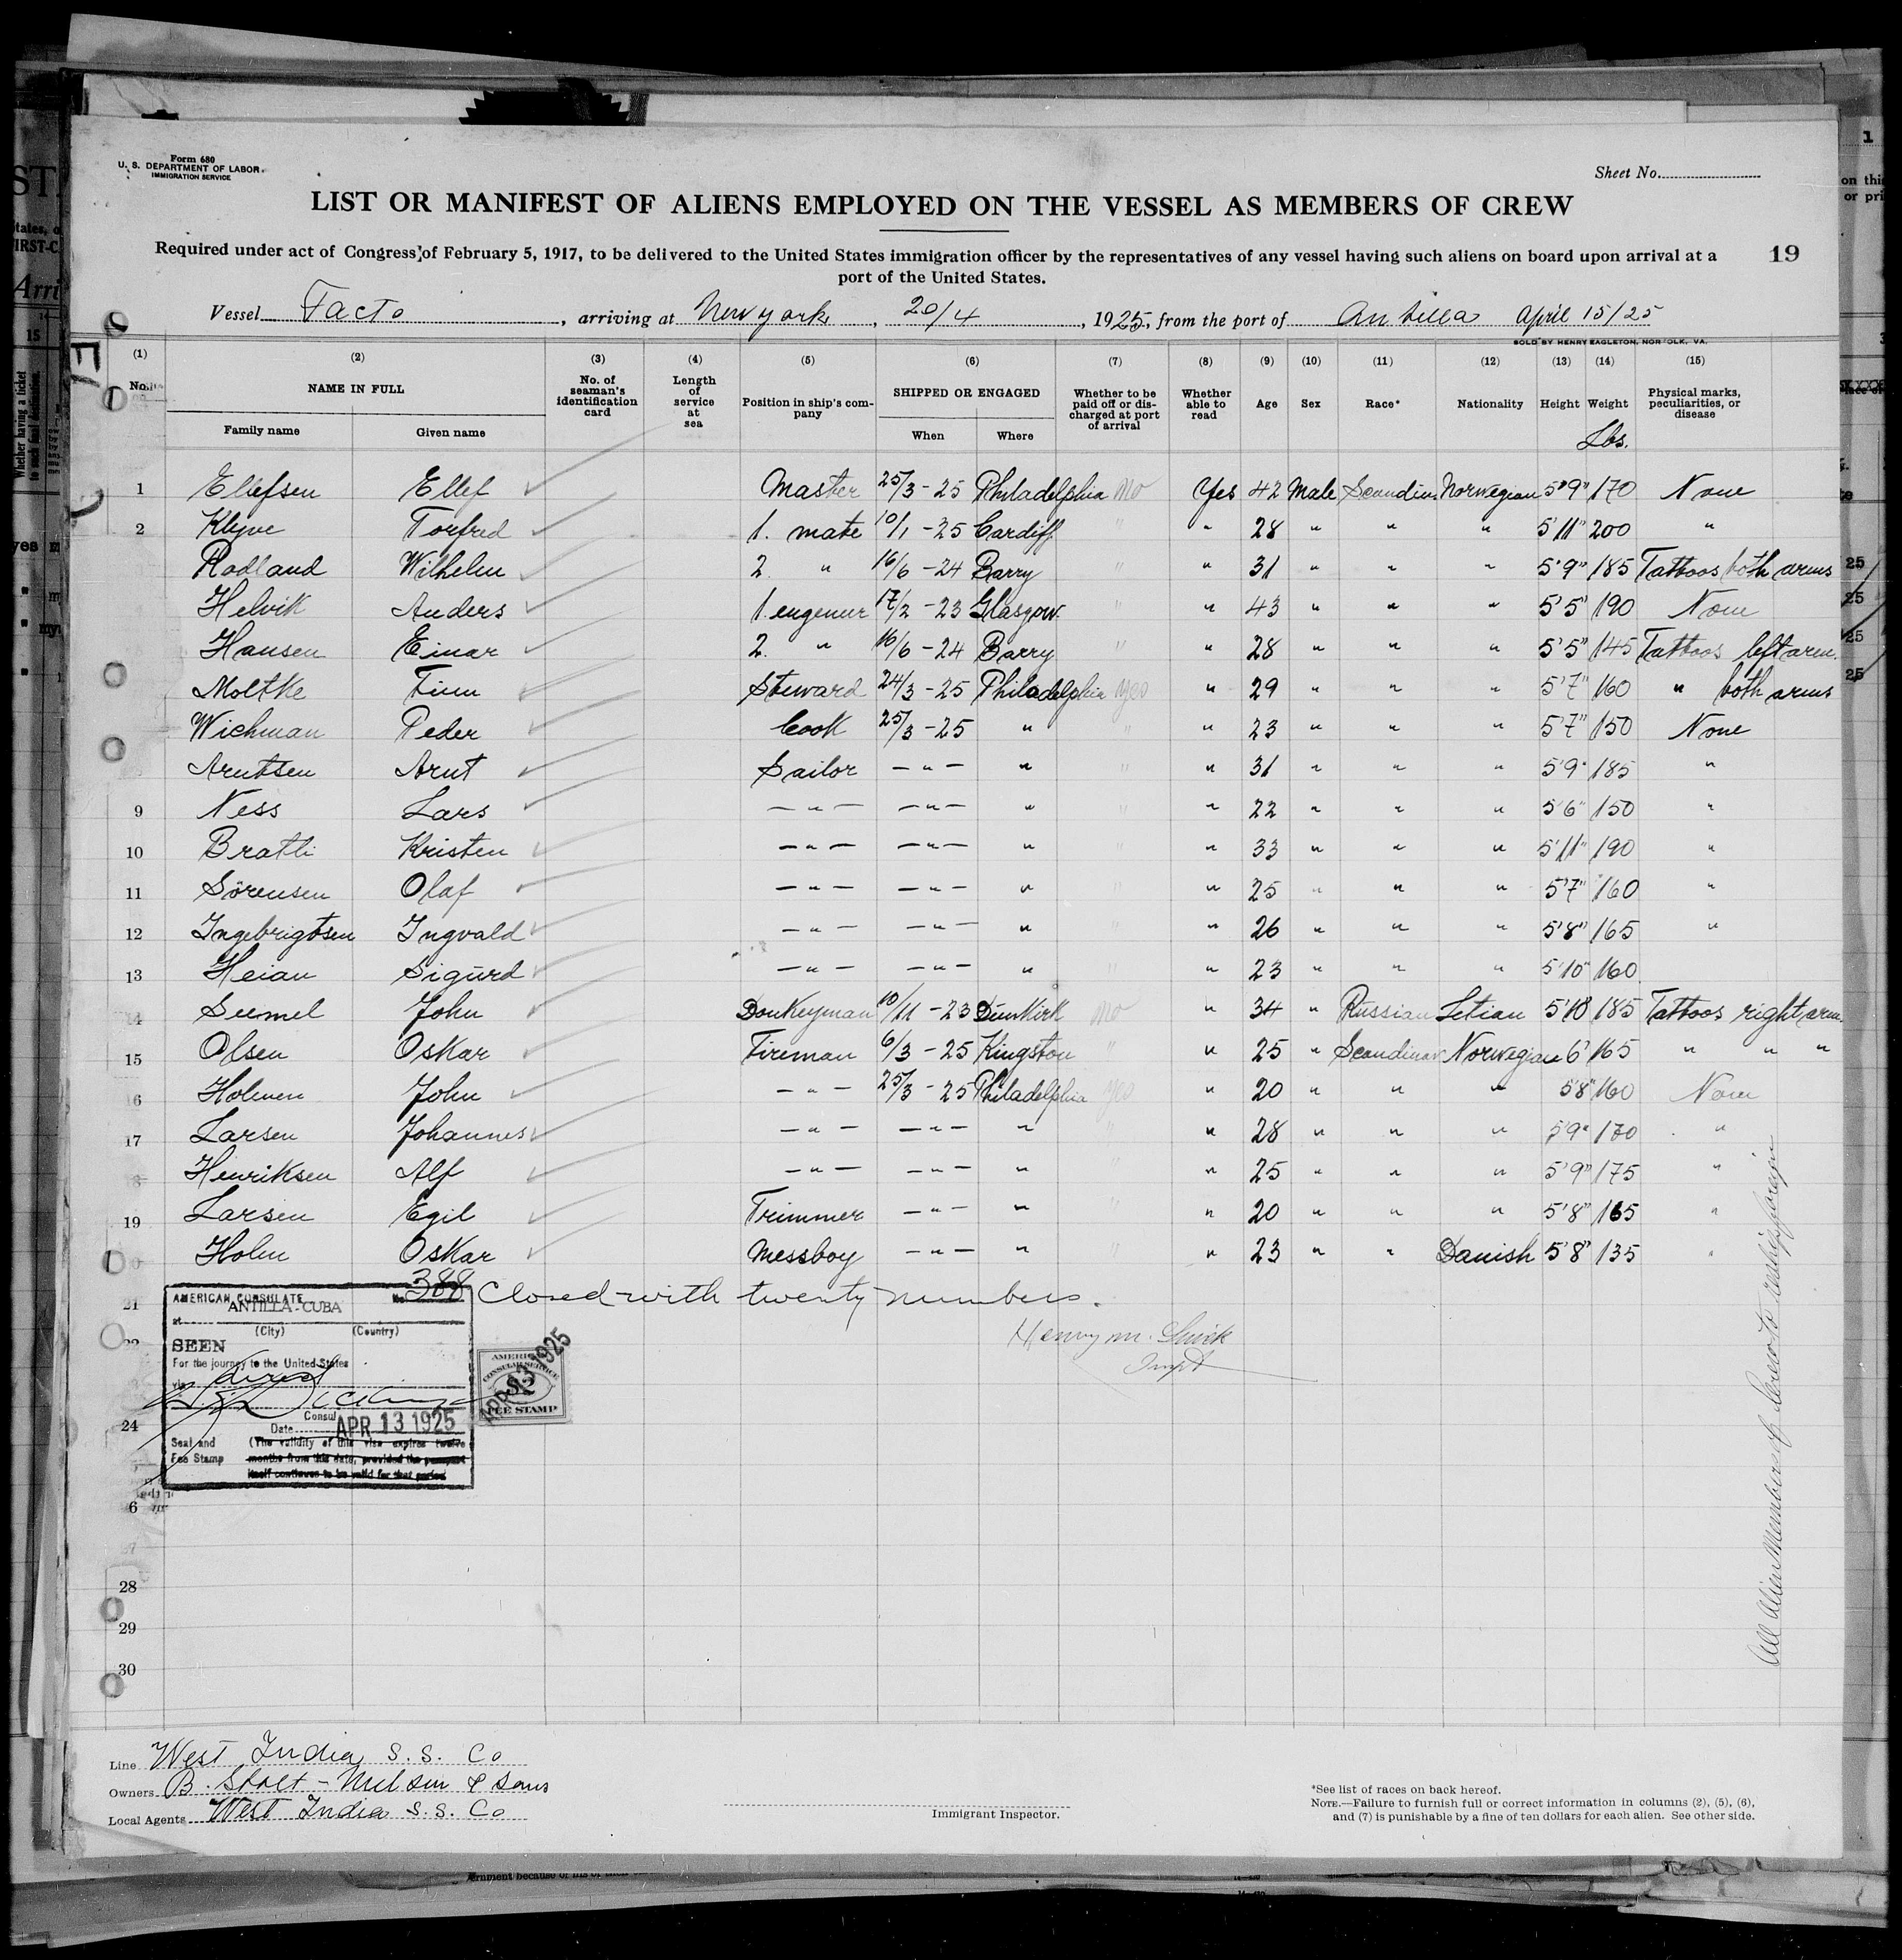 Form 680
U. S. DEPARTMENT OF LABOR
IMMIGRATION SERVICE
Sheet No.
LIST OR MANIFEST OF ALIENS EMPLOYED ON THE VESSEL AS MEMBERS OF CREW
Required under act of Congress of February 5, 1917, to be delivered to the United States immigration officer by the representatives of any vessel having such aliens on board upon arrival at a
port of the United States.
19
Vessel Facto, arriving at New york, 20/4, 1925, from the port of Antilla April 15/25
SOLD BY HENRY EAGLETON, NORFOLK, VA.
(1) (2) (3) (4) (5) (6) (7) (8) (9) (10) (11) (12) (13) (14) (15)
No. NAME IN FULL No. of seaman's identification card Length of service at sea Position in ship's company SHIPPED OR ENGAGED Whether to be paid off or discharged at port of arrival Whether able to read Age Sex Race* Nationality Height Weight Physical marks, peculiarities, or disease
Family name Given name When Where Lbs.
1 Ellefsen Ellef Master 25/3-25 Philadelphia No Yes 42 Male Scandin. Norwegian 5'9" 170 None
2 Klyve Torfred 1. mate 10/1-25 Cardiff " " 28 " " " 5'11" 200 "
Rodland Wilhelm 2. " 16/6-24 Barry " " 31 " " " 5'9" 185 Tattoos both arms
Helvik Anders 1. engeneur 17/2-23 Glasgow. " " 43 " " " 5'5" 190 None
Hansen Einar 2. " 16/6-24 Barry " " 28 " " " 5'5" 145 Tattoos left arm.
Moltke Finn Steward 24/3-25 Philadelphia Yes " 29 " " " 5'7" 160 " both arms
Wichman Peder Cook 25/3-25 " " " 23 " " " 5'7" 150 None
Arntsen Arnt Sailor -"- " " " 31 " " " 5'9" 185 "
9 Ness Lars -"- -"- " " " 22 " " " 5'6" 150 "
10 Bratli Kristen -"- -"- " " " 33 " " " 5'11" 190 "
11 Sörensen Olaf -"- -"- " " " 25 " " " 5'7" 160 "
12 Ingebrigtsen Ingvald -"- -"- " " " 26 " " " 5'8" 165 "
13 Heian Sigurd -"- -"- " " " 23 " " " 5'10" 160
14 Seemel John Donkeyman 10/11-23 Dunkirk No " 34 " Russian Letian 5'10" 185 Tattoos right arm.
15 Olsen Oskar Fireman 6/3-25 Kingston " " 25 " Scandinav Norwegian 6' 165 " " "
16 Holmen John -"- 25/3-25 Philadelphia Yes " 20 " " " 5'8" 160 None
17 Larsen Johannes -"- -"- " " " 28 " " " 5'9" 170 "
18 Henriksen Alf -"- -"- " " " 25 " " " 5'9" 175 "
19 Larsen Egil Trimmer -"- " " " 20 " " " 5'8" 165 "
Holm Oskar Messboy -"- " " " 23 " " Danish 5'8" 135 "
21 Closed with twenty numbers.
Henry M.
Inspt
AMERICAN CONSULATE No. 388
at ANTILLA-CUBA
(City) (Country)
SEEN
For the journey to the United States
via direct
Consul
Date APR 13 1925
Seal and Fee Stamp
(The validity of this visa expires twelve
months from this date, provided the passport
itself continues to be valid for that period
AMERICAN
CONSULAR SERVICE
$2
FEE STAMP
APR 13 1925
24
6
28
29
30
All Alien Members of Crew to reship foreign
Line West India S. S. Co
Owners B. Stolt-Nielsen & Sons
Local Agents West India S. S. Co
Immigrant Inspector.
*See list of races on back hereof.
NOTE.—Failure to furnish full or correct information in columns (2), (5), (6),
and (7) is punishable by a fine of ten dollars for each alien. See other side.